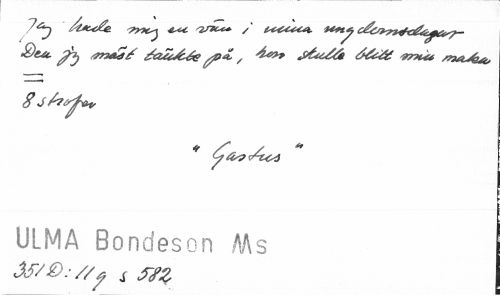 Jag hade mig en vän i mina ungdomsdagar
Den jg mäst täukte på, hon skulle blitt min maka
8 strofer
"Gastus"
ULMA Bondeson Ms
351 D: 11 q s 582